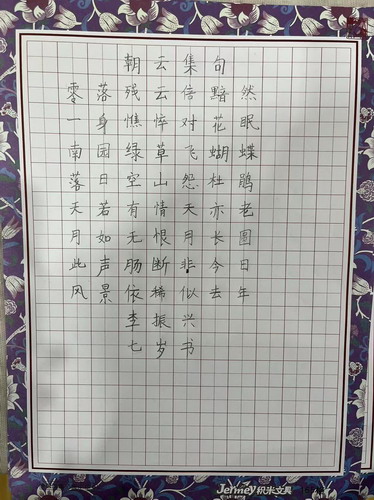 朝云集句
零落残云倍黯然
一身憔悴对花眠
南园绿草飞蝴蝶
落日空山怨杜鹃
天若有情天亦老
月如无恨月长圆
此声肠断非今日
风景依稀似去年
李振兴
七岁书
Jermey 积米文具